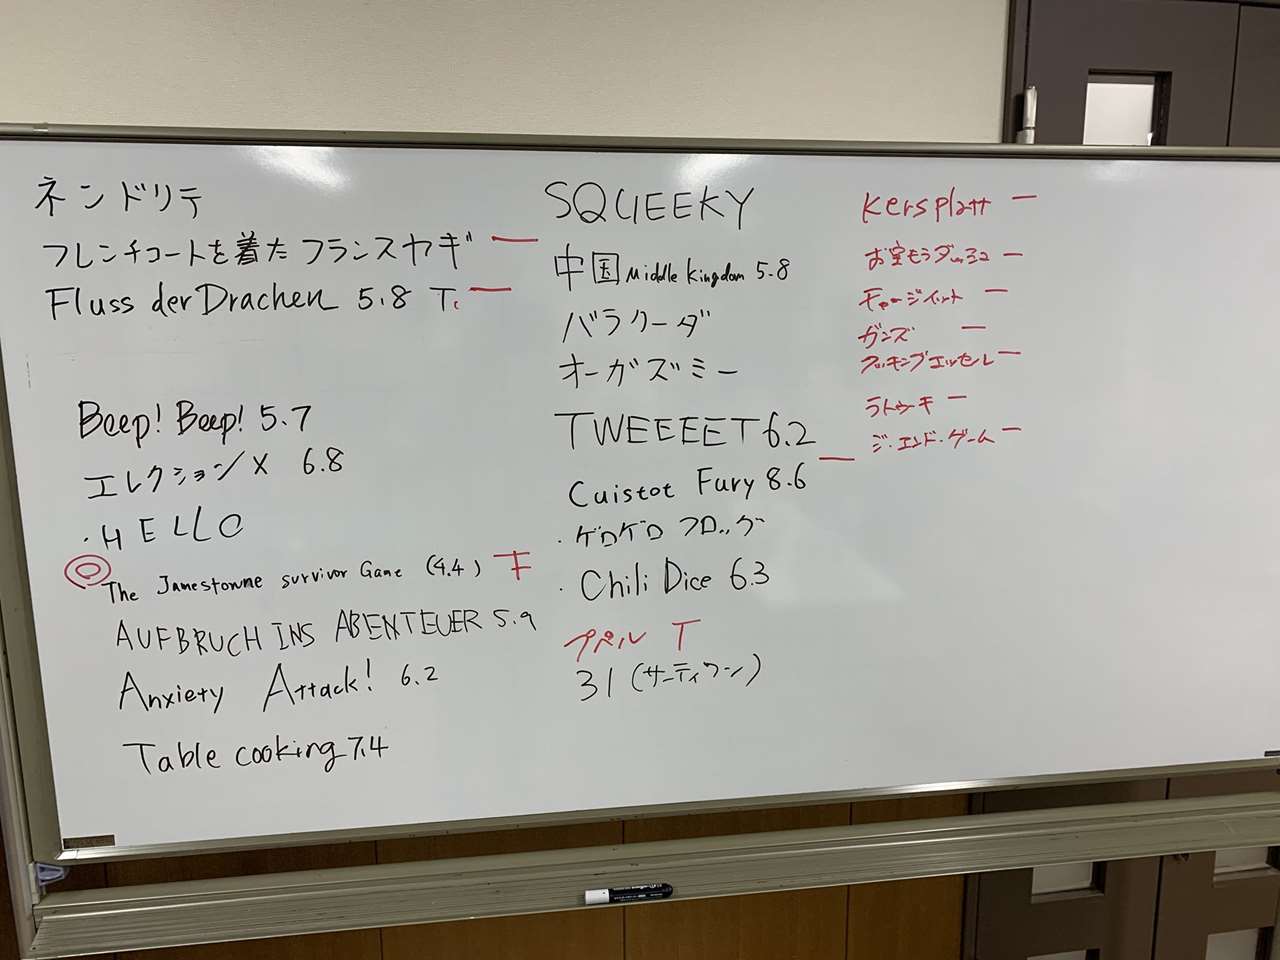 ネンドリテ
フレンチコートを着たフランスヤギ 一
Fluss der Drachen 5.8 T 一
Beep! Beep! 5.7
エレクションX 6.8
・HELLO
◎The Jamestowne survivor Game (4.4) 下
AUFBRUCH INS ABENTEUER 5.9
Anxiety Attack! 6.2
Table cooking 7.4
SQUEEKY
中国 Middle Kingdom 5.8
バラクーダ
オーガズミー
TWEEEET 6.2
Cuistot Fury 8.6 一
・ゲロゲロフロッグ
・Chili Dice 6.3
プペル T
31(サーティワーン)
Kersplatt 一
お宝もうダッシュ 一
チャージイット 一
ガンズ 一
クッキングエッセル 一
ラトゥーキ 一
ジ・エンド・ゲーム 一